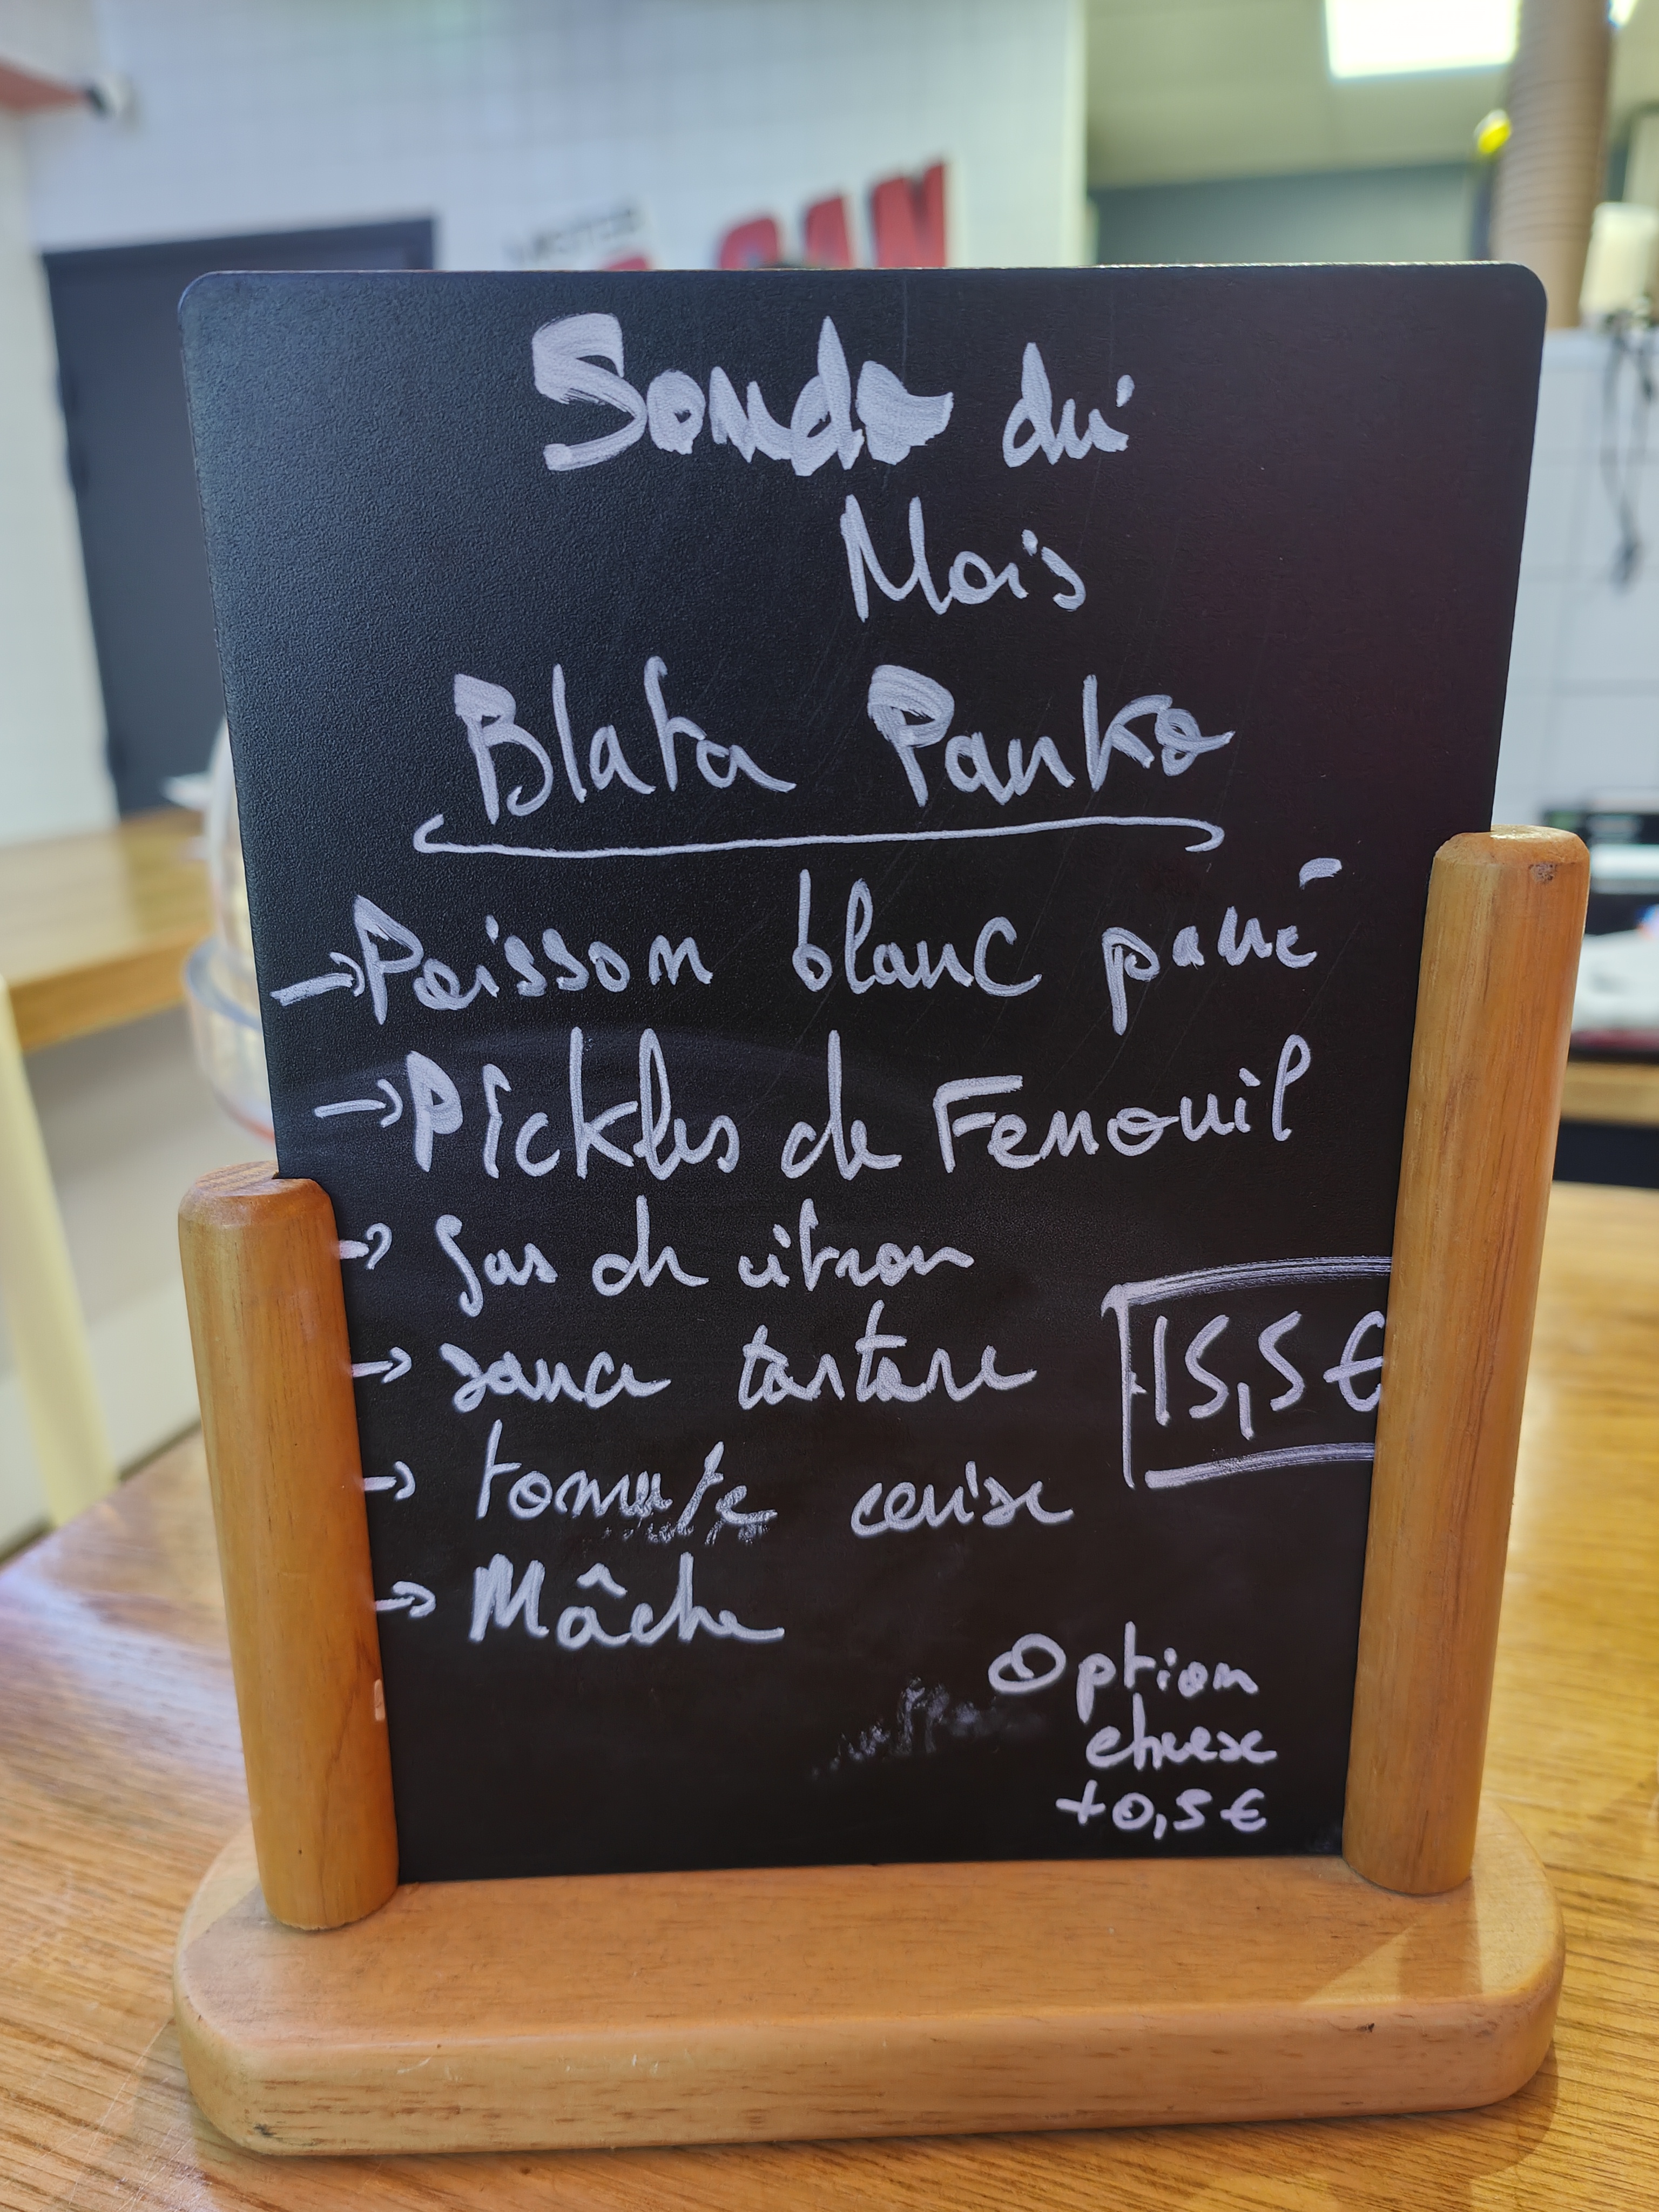 Sando du
Mois
Blata Panko
→ Poisson blanc pané
→ Pickles de Fenouil
→ Jus de citron
→ sauce tartare
15,5 €
→ tomate cerise
→ Mâche
Option
cheese
+0,5 €